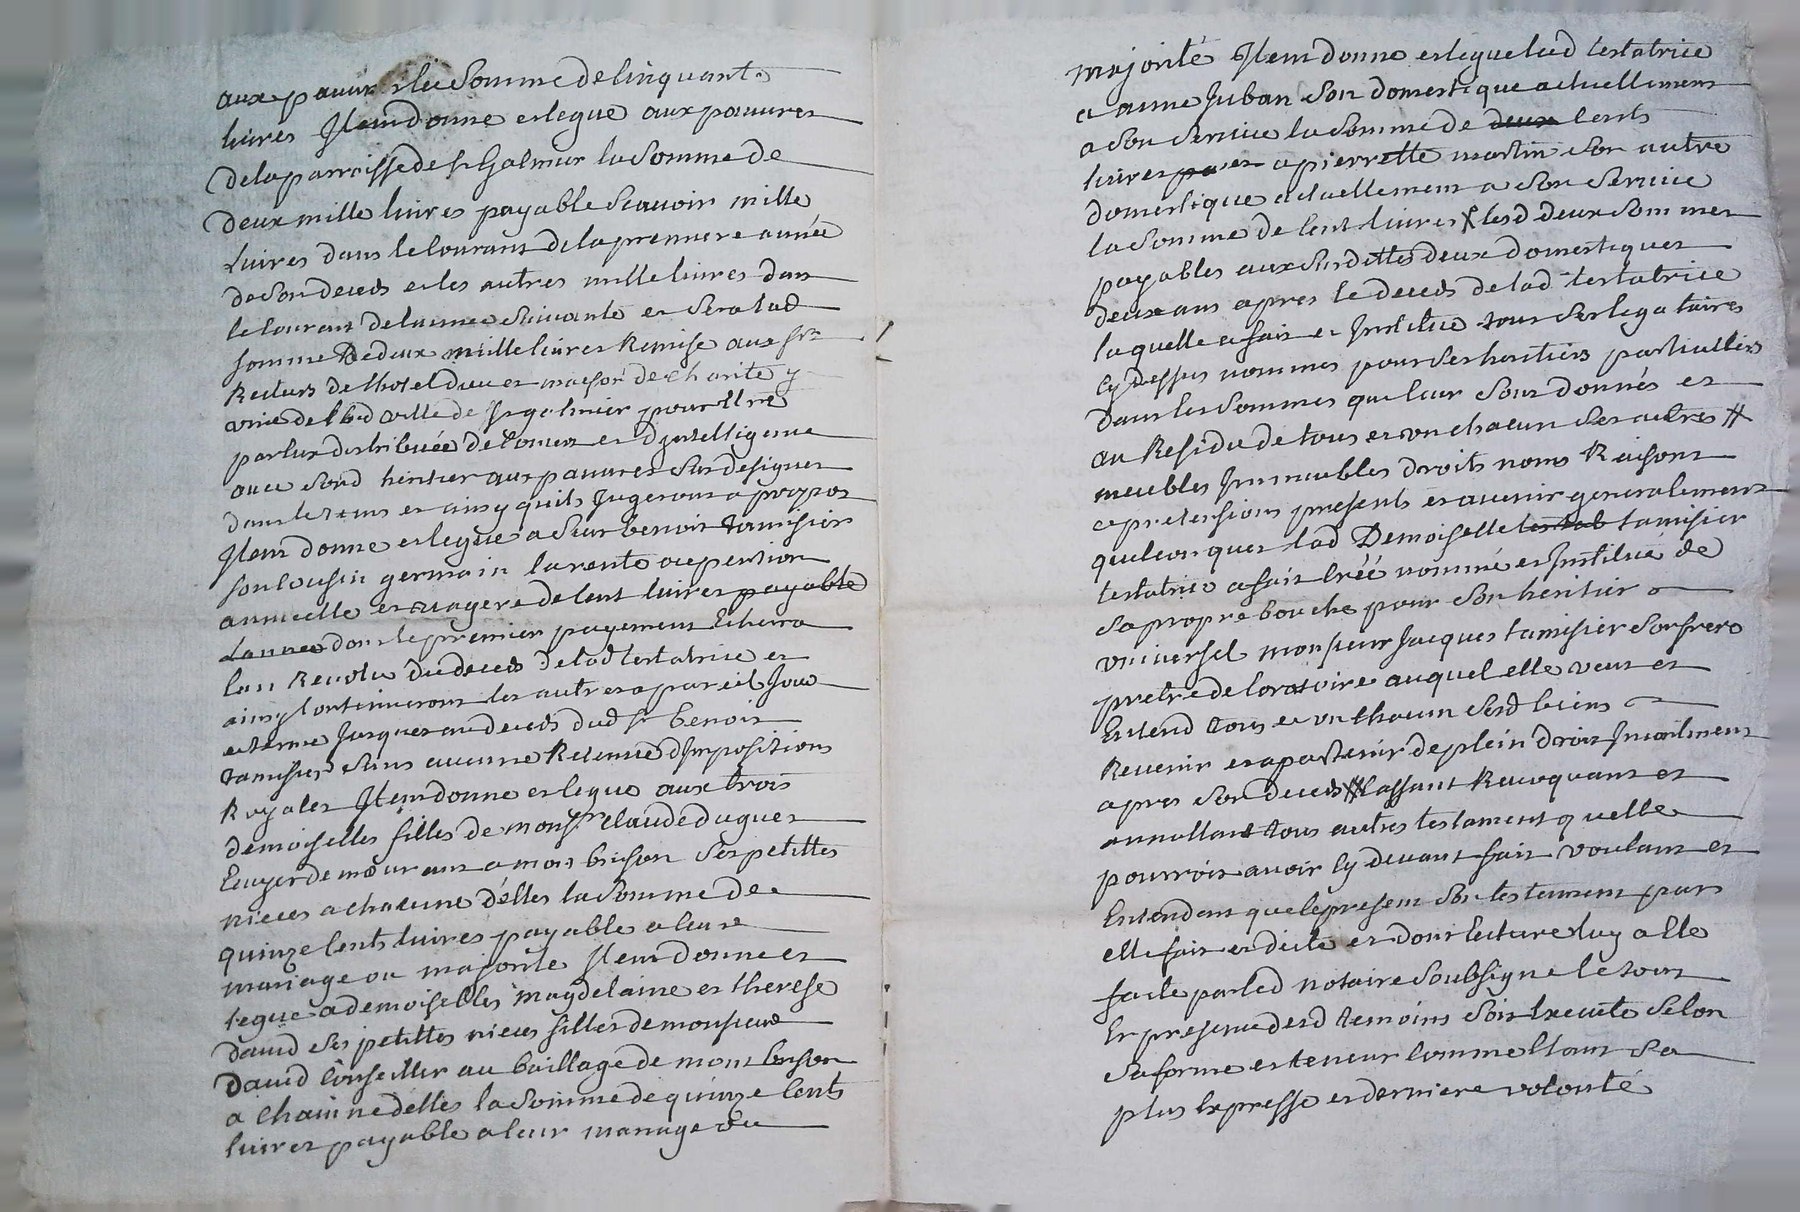 aux pauvres la somme de Cinquante
livres Item donne et legue aux pauvres
de la parroisse de st Galmier la somme de
deux mille livres payable scavoir mille
livres dans le Courant de la premiere année
de son deceds et les autres mille livres dans
le Courant de lannee suivante et sera lad
somme de deux mille livres Remise aux srs
Recteurs de lhotel dieu et maison de charité y
unie de lad ville de st galmier pour etre
par eux distribuée de concert et dintelligence
avec sond heritier aux pauvres sus designes
dans le tems et ainsy quils Jugeront a propos
Item donne et legue a sieur benoit tamisier
son Cousin germain la rente ou pention
annuelle et viagere de Cent livres payable
dannee dont le premier payement Echerra
lan Revolu du deceds de lad testatrice et
ainsy Continueront les autres a pareil Jour
et terme Jusques au deceds dud sr benoit
tamisier sans aucune Retenue dImpositions
Royales Item donne et legue aux trois
demoiselles filles de monsr claude duguet
Ecuyer demeurant a mont brison ses petittes
nieces a chacune d'elles la somme de
quinze Cents livres payable a leur
mariage ou majorite Item donne et
legue a demoiselles magdelaine et therese
david ses petittes nieces filles de monsieur
David Conseiller au baillage de mont brison
a chacunne delles la somme de quinze Cents
livres payable a leur mariage ou
majorité Item donne et legue lad testatrice
a anne Juban son domestique actuellement
a son service la somme de deux Cents
livres et a pierrette martin son autre
domestique actuellement a son service
la somme de Cent livres lesd deux sommes
payables aux susdittes deux domestiques
deux ans apres le deceds de lad testatrice
laquelle a fait et Institue tous ses legataires
Cy dessus nommes pour ses heritiers particulliers
dans les sommes que leur sont donnés et
au Residu de tous et un chacun ses autres #
meubles Immeubles droits noms Raisons
et pretensions presents et avenir generalement
quelconques lad Demoiselle testat tamisier
testatrice a fait Créé nommé et Institué de
sa propre bouche pour son heritier
universel monsieur Jacques tamisier son frere
pretre de loratoire auquel elle veut et
Entend tous et un chacun sesd biens
Revenir et apartenir de plein droit Incontinent
apres son deceds Cassant Revoquant et
annullant tous autres testament quelle
pourroit avoir Cy devant fait voulant et
Entendant que le present son testament par
elle fait et dicté et dont lecture luy a Ete
faite par led notaire soubsigne le tout
En presence desd temoins soit Executé selon
sa forme et teneur Comme Etant sa
plus Expresse et derniere volonté